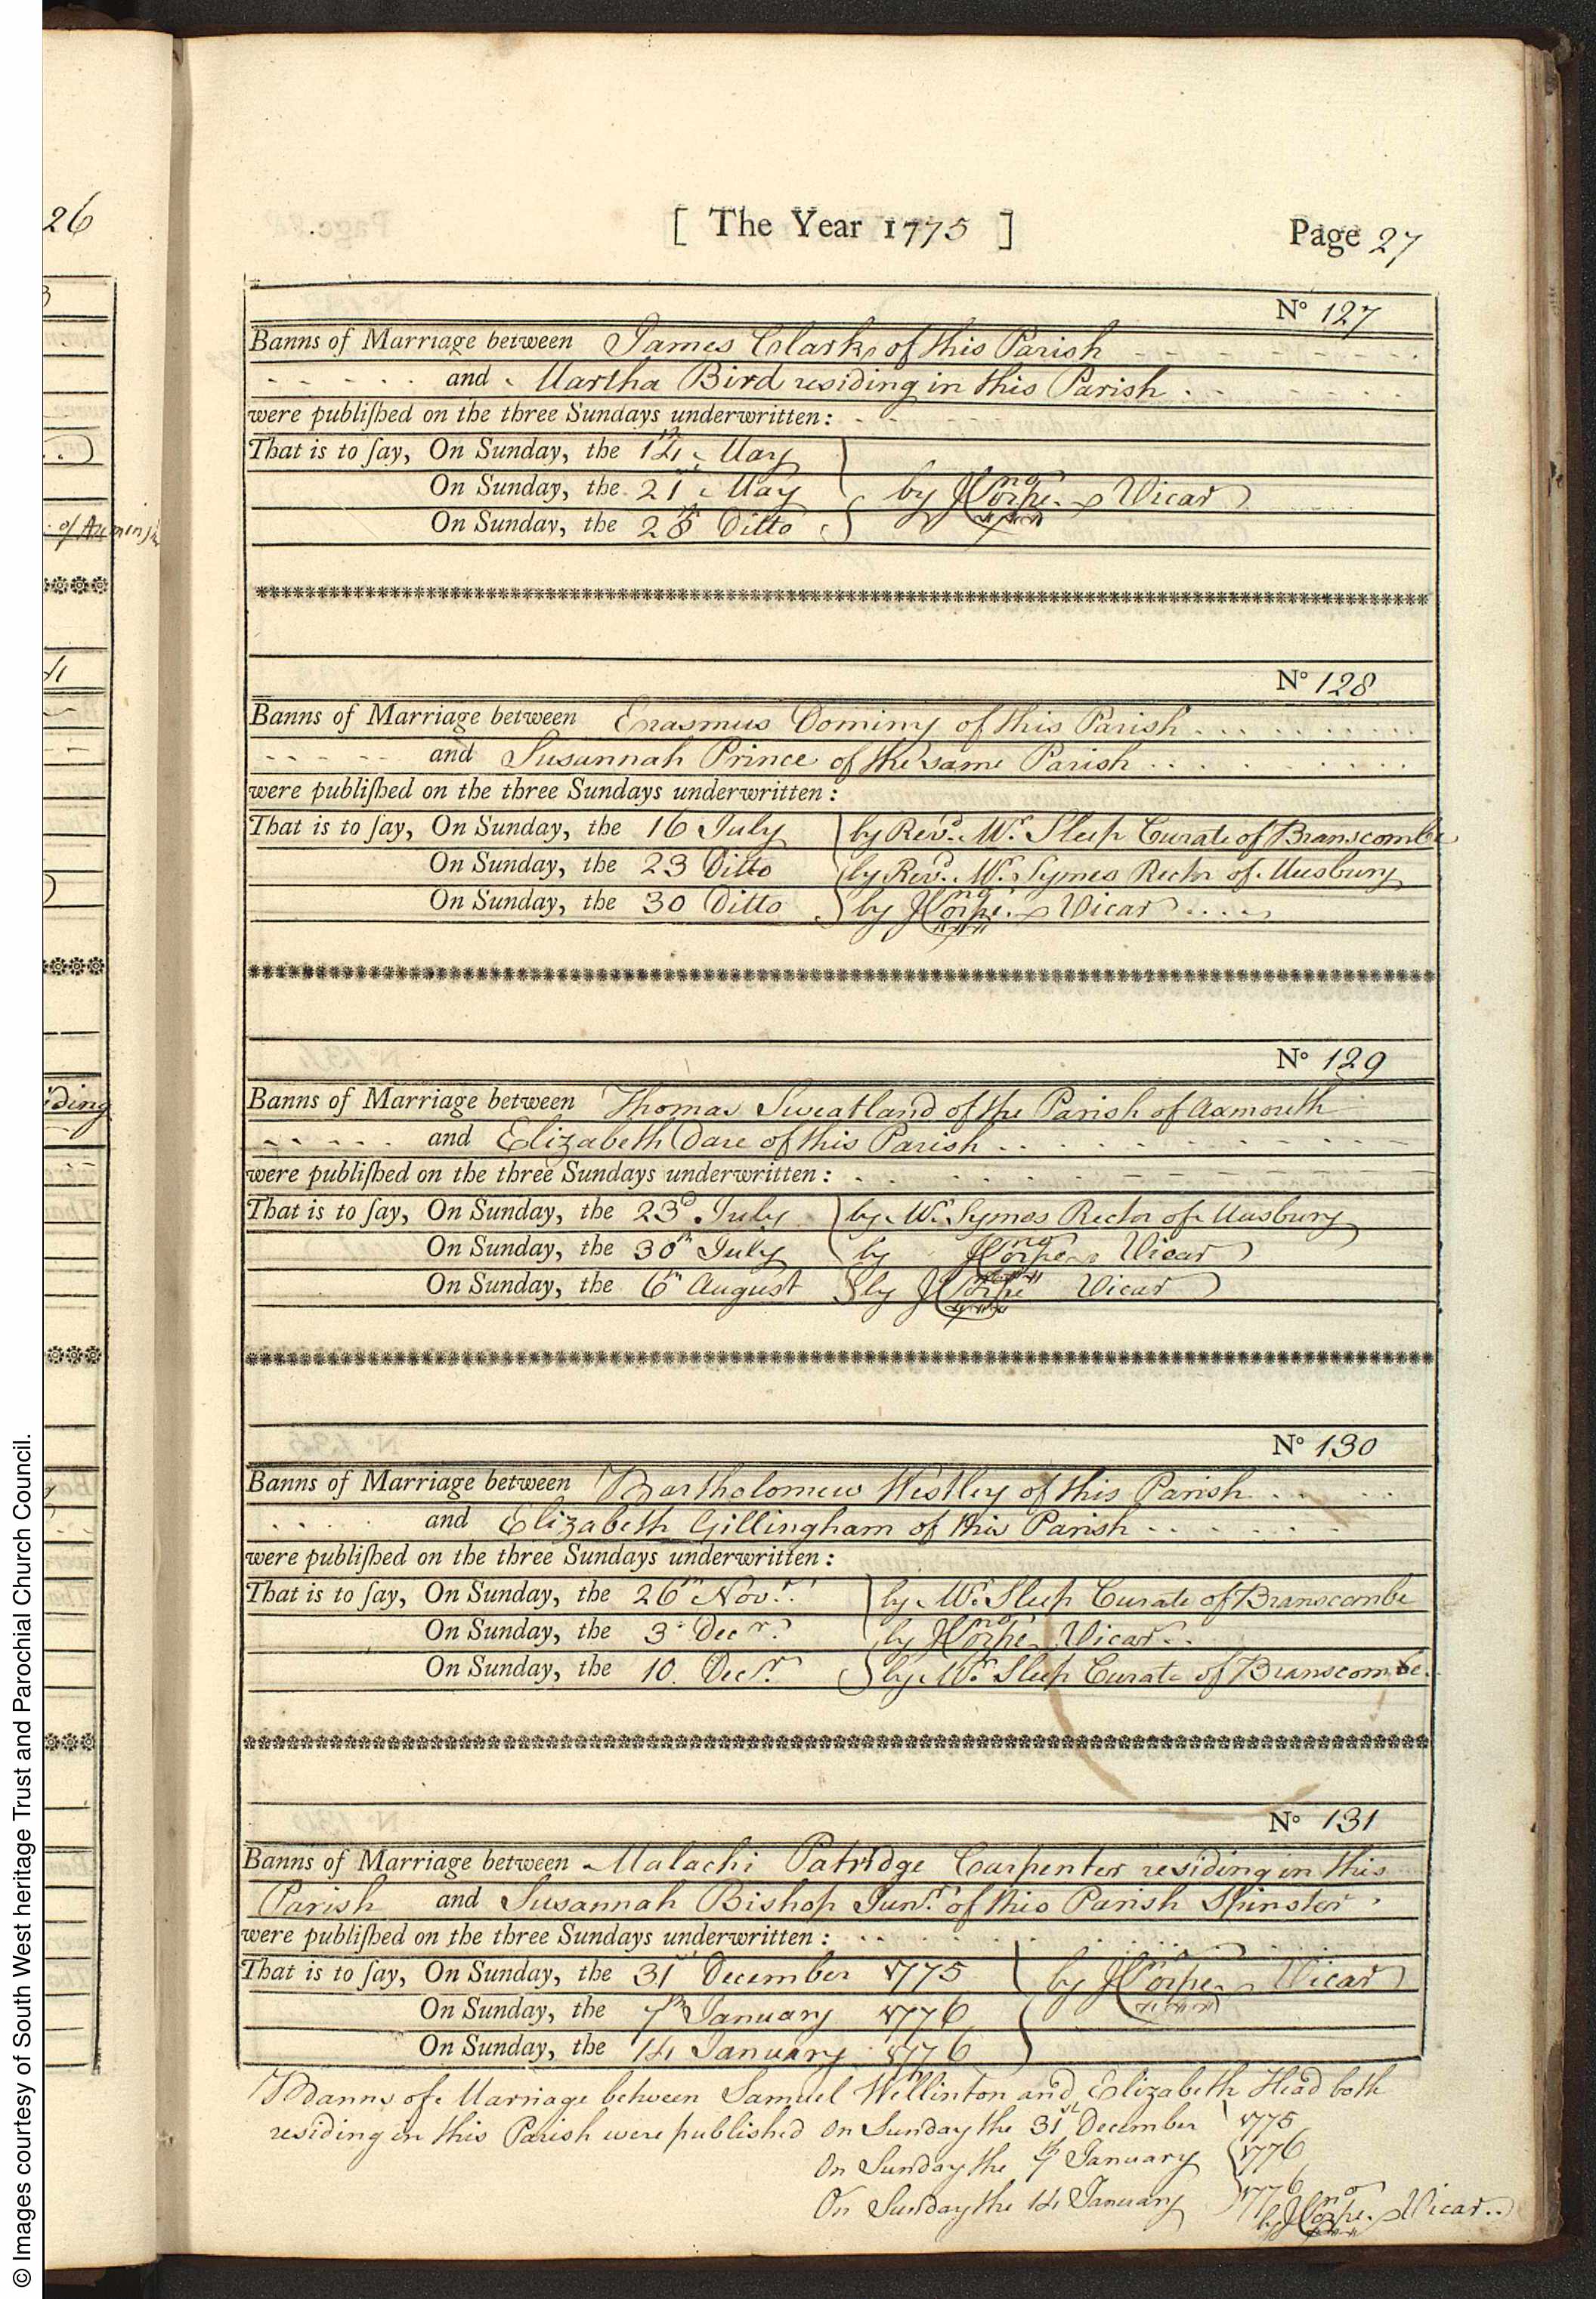 26
[ The Year 1775 ]
Page 27
of Axminster
iding
N° 127
Banns of Marriage between James Clark of this Parish
and Martha Bird residing in this Parish
were publiſhed on the three Sundays underwritten:
That is to ſay, On Sunday, the 14th May
On Sunday, the 21st May by Jno Vicar
On Sunday, the 28th Ditto
N° 128
Banns of Marriage between Erasmus Dominy of this Parish
and Susannah Prince of the same Parish
were publiſhed on the three Sundays underwritten:
That is to ſay, On Sunday, the 16 July by Revd. Mr. Sleep Curate of Branscombe
On Sunday, the 23 Ditto by Revd. Mr. Symes Rector of Musbury
On Sunday, the 30 Ditto by Jno Vicar
N° 129
Banns of Marriage between Thomas Sweatland of the Parish of Axmouth
and Elizabeth Dare of this Parish
were publiſhed on the three Sundays underwritten:
That is to ſay, On Sunday, the 23d July by Mr. Symes Rector of Musbury
On Sunday, the 30th July by Jno Vicar
On Sunday, the 6th August by Vicar
N° 130
Banns of Marriage between Bartholomew Westley of this Parish
and Elizabeth Gillingham of this Parish
were publiſhed on the three Sundays underwritten:
That is to ſay, On Sunday, the 26th Novr. by Mr. Sleep Curate of Branscombe
On Sunday, the 3d Decr. by Jno Vicar
On Sunday, the 10 Decr. by Mr. Sleep Curate of Branscombe.
N° 131
Banns of Marriage between Malachi Patridge Carpenter residing in this
Parish and Susannah Bishop Junr. of this Parish Spinster
were publiſhed on the three Sundays underwritten:
That is to ſay, On Sunday, the 31st December 1775 by Jno Vicar
On Sunday, the 7th January 1776
On Sunday, the 14 January 1776
Banns of Marriage between Samuel Wellinton and Elizabeth Head both
residing in this Parish were published On Sunday the 31st December 1775
On Sunday the 7th January 1776
On Sunday the 14 January 1776
by Jno Vicar
© Images courtesy of South West heritage Trust and Parochial Church Council.